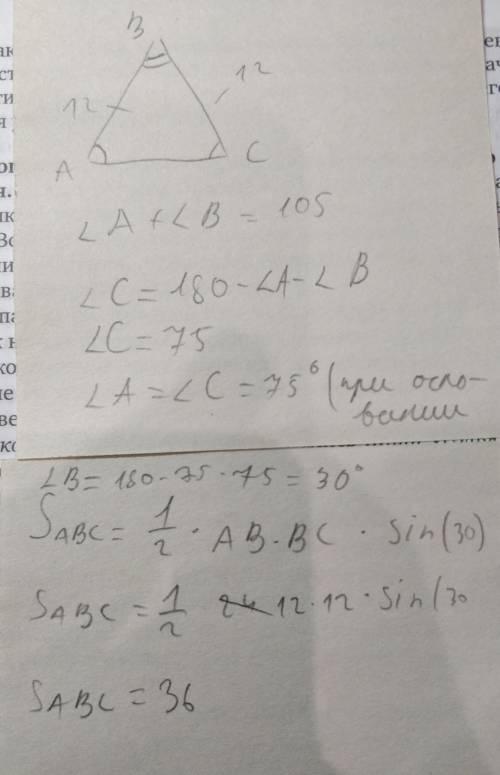 B
12
12
A
C
∠A + ∠B = 105
∠C = 180 - ∠A - ∠B
∠C = 75
∠A = ∠C = 75° (при осно-
вании
∠B = 180 - 75 - 75 = 30°
S ABC = 1/2 · AB · BC · sin(30)
S ABC = 1/2 12 · 12 · sin(30
S ABC = 36